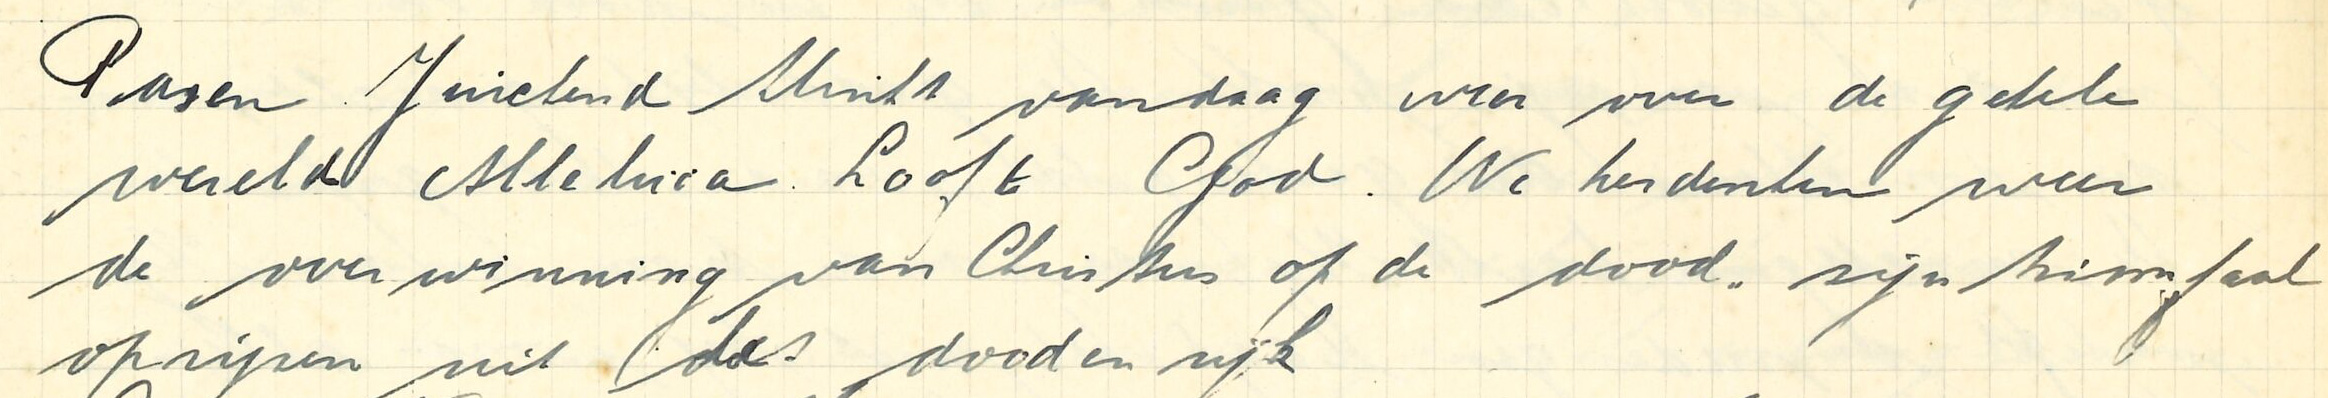 Pasen Juichend klinkt vandaag weer over de gehele
wereld Alleluia. Looft God. We herdenken weer
de overwinning van Christus op de dood. zijn triomfaal
oprijzen uit het doodenrijk